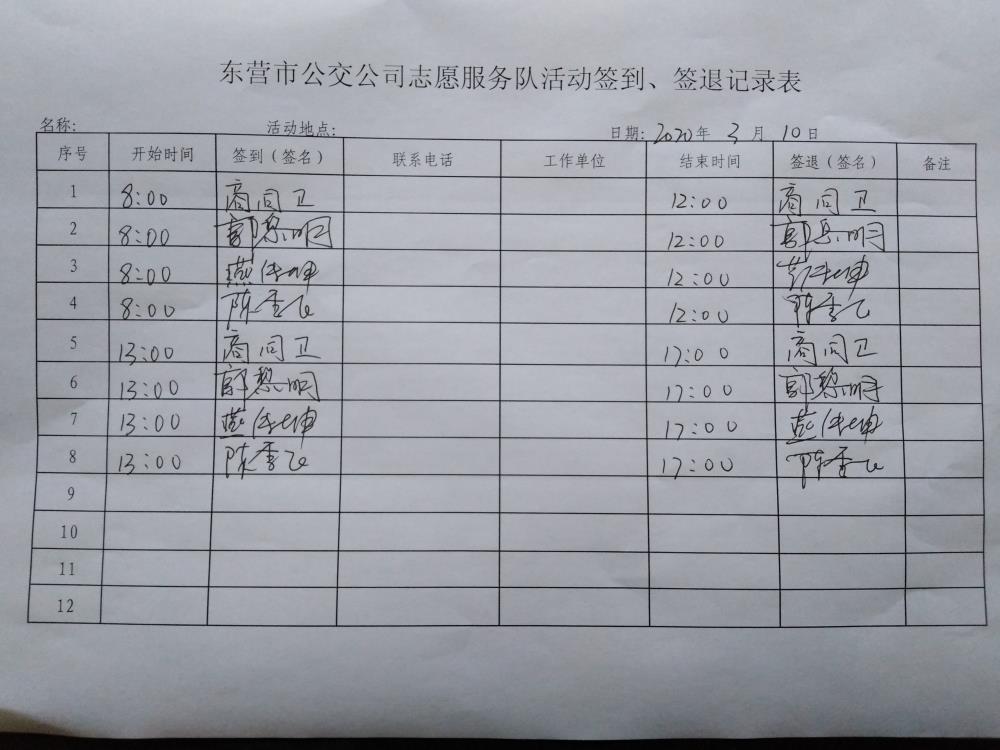 东营市公交公司志愿服务队活动签到、签退记录表
名称: 活动地点: 日期: 2020年 3月 10日
序号 开始时间 签到（签名） 联系电话 工作单位 结束时间 签退（签名） 备注
1 8:00 商同卫 12:00 商同卫
2 8:00 郭黎明 12:00 郭黎明
3 8:00 燕传坤 12:00 燕传坤
4 8:00 陈季飞 12:00 陈季飞
5 13:00 商同卫 17:00 商同卫
6 13:00 郭黎明 17:00 郭黎明
7 13:00 燕传坤 17:00 燕传坤
8 13:00 陈季飞 17:00 陈季飞
9
10
11
12